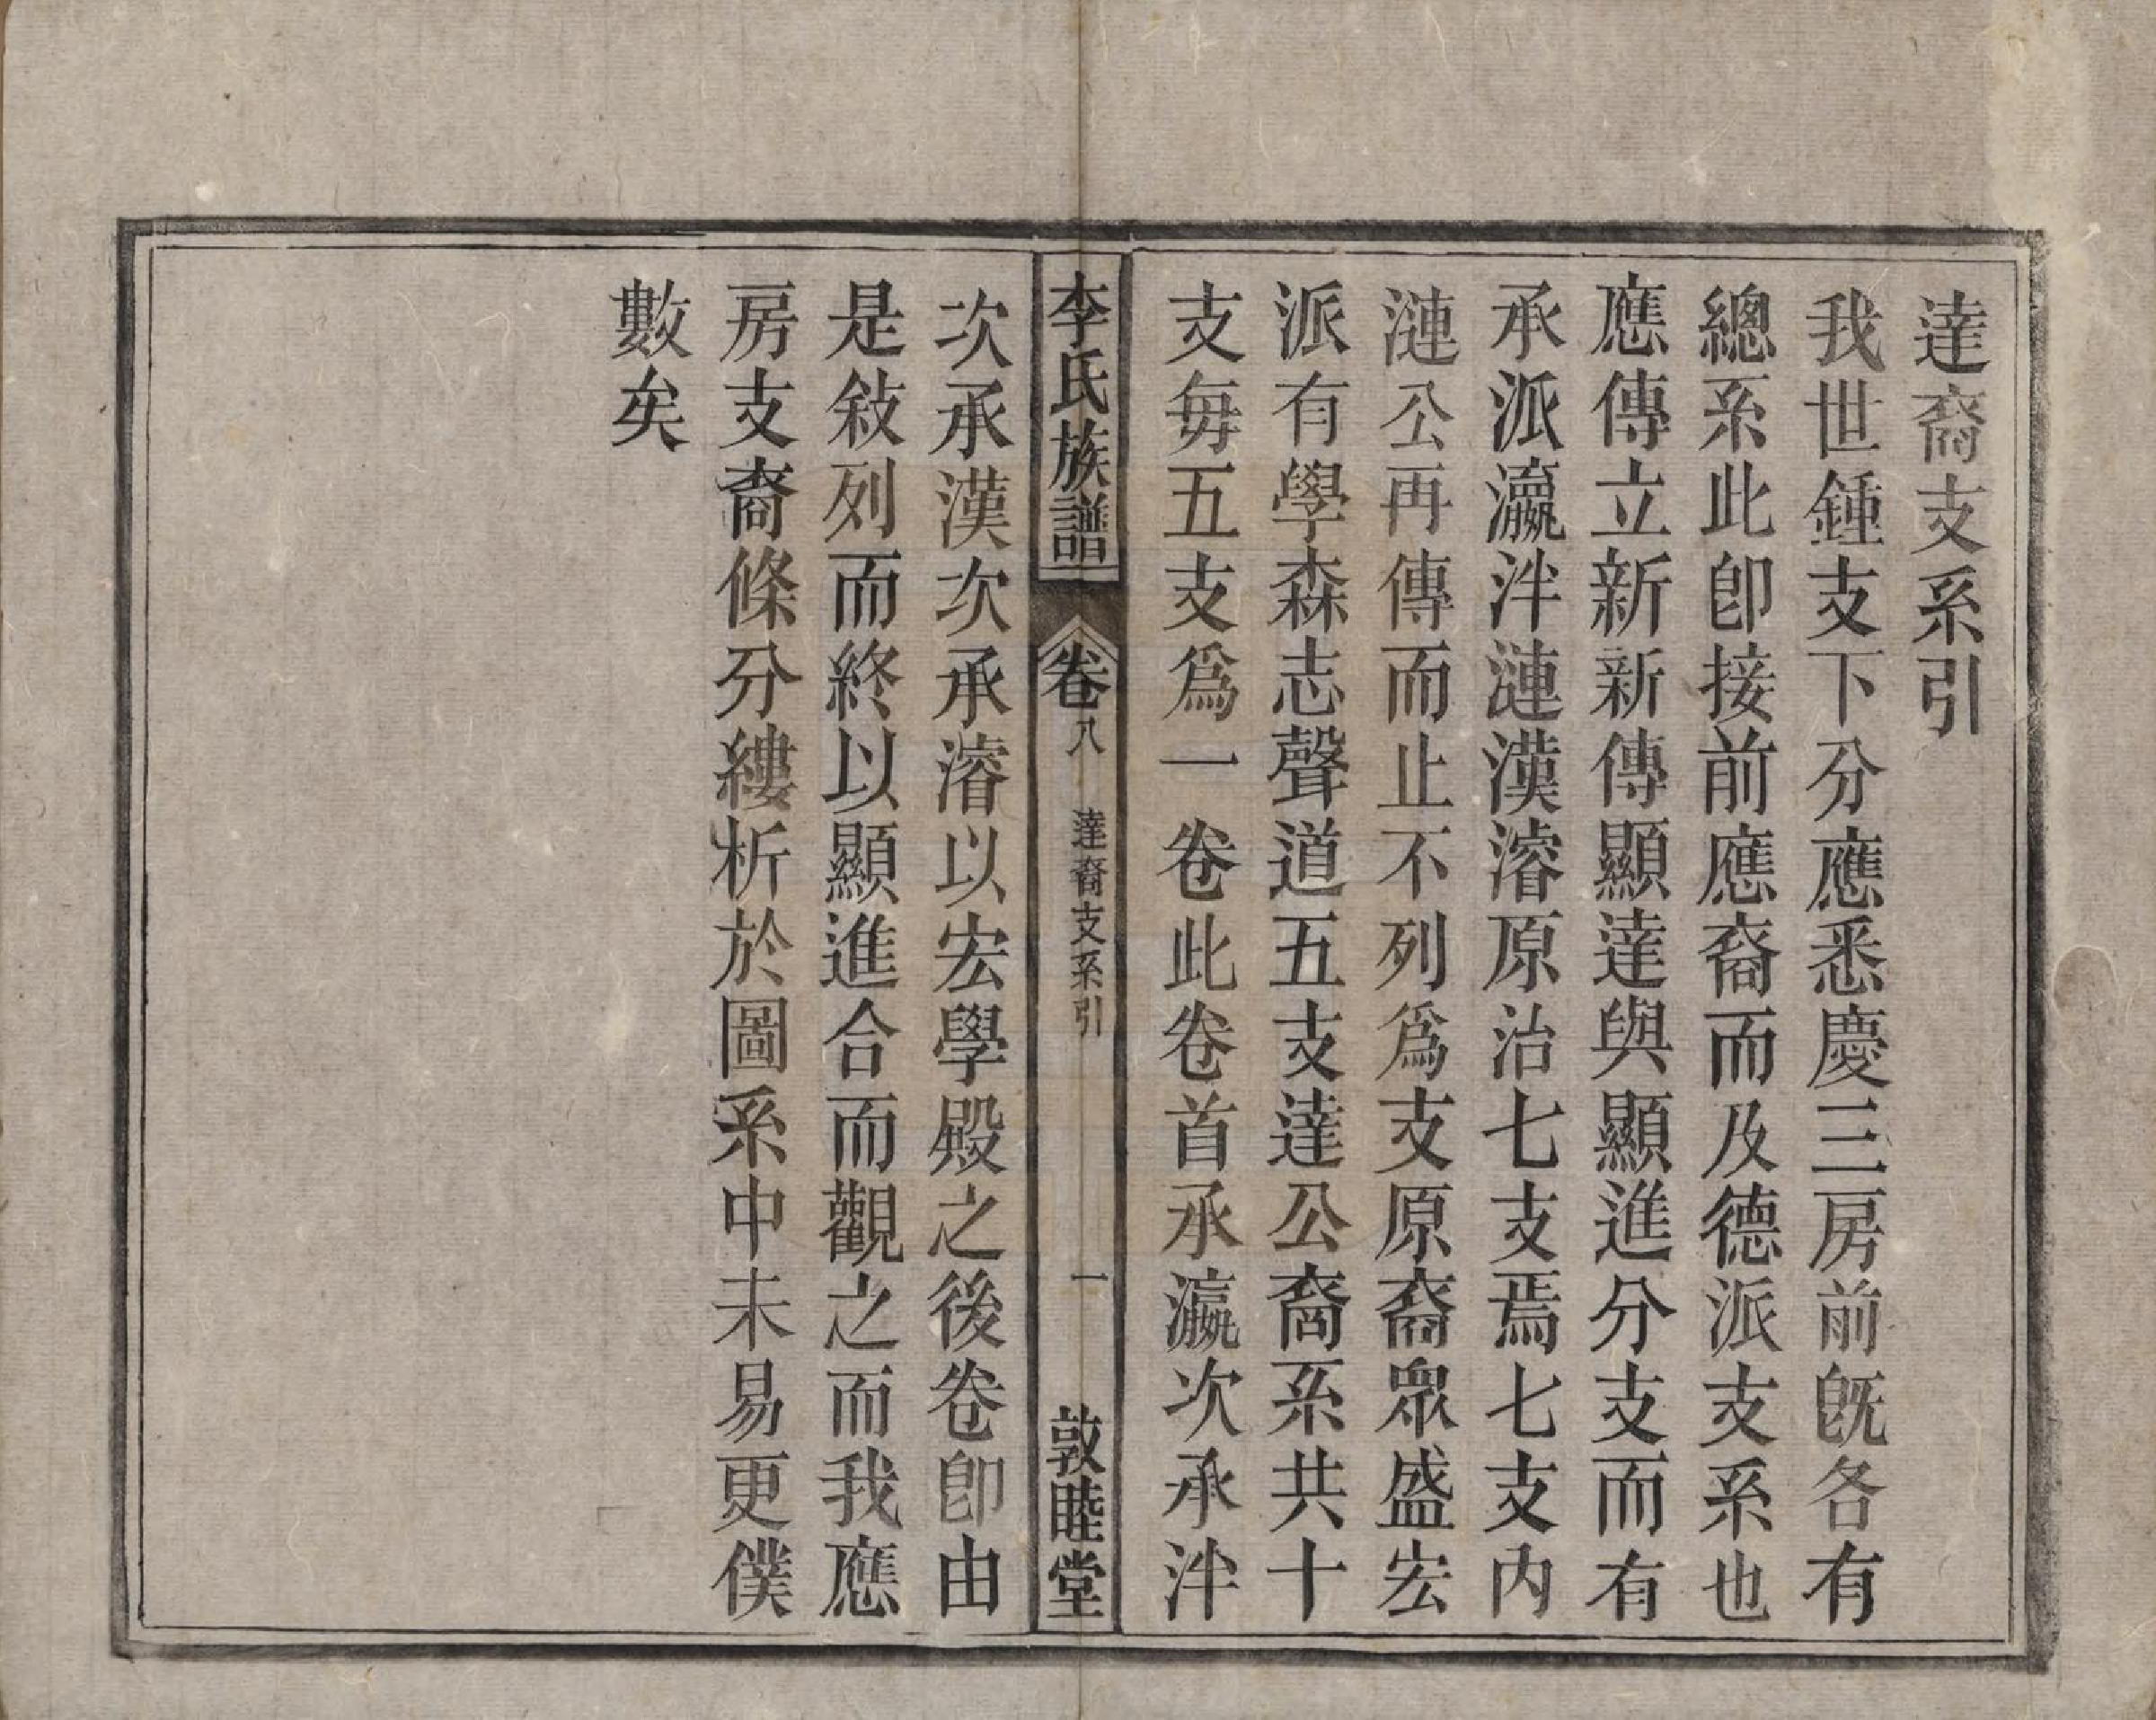 達裔支系引
我世鍾支下分應悉慶三房前旣各有
總系此卽接前應裔而及德派支系也
應傳立新新傳顯達與顯進分支而有
承派瀛泮漣漢濬原治七支焉七支內
漣公再傳而止不列爲支原裔眾盛宏
派有學森志聲道五支達公裔系共十
支每五支爲一卷此卷首承瀛次承泮
李氏族譜
卷八
達裔支系引
一
敦睦堂
次承漢次承濬以宏學殿之後卷卽由
是敍列而終以顯進合而觀之而我應
房支裔條分縷析於圖系中未易更僕
數矣